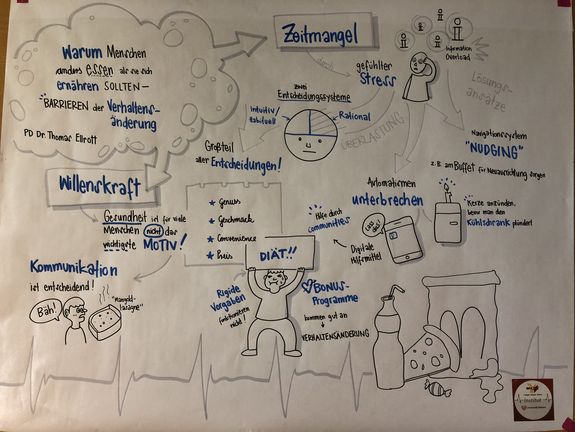 Warum Menschen
anders essen als sie sich
ernähren SOLLTEN –
BARRIEREN der Verhaltens-
änderung
PD Dr. Thomas Ellrott
Zeitmangel
durch
gefühlter
Stress
Information
Overload
Lösungs-
ansätze
zwei
Entscheidungssysteme
Intuitiv/
habituell
Rational
ÜBERLASTUNG
Großteil
aller Entscheidungen!
Navigationssystem
"NUDGING"
z.B. am Buffet für Neuausrichtung sorgen
Willenskraft
Gesundheit ist für viele
Menschen nicht das
wichtigste MOTIV!
★ Genuss
★ Geschmack
★ Convenience
★ Preis
Automatismen
unterbrechen
Hilfe durch
communities
Digitale
Hilfsmittel
Kerze anzünden,
bevor man den
Kühlschrank plündert
Kommunikation
ist entscheidend!
Bäh!
"Mangold-
lasagne"
DIÄT!!
Rigide
Vorgaben
funktionieren nicht!
BONUS-
Programme
kommen gut an
VERHALTENSÄNDERUNG